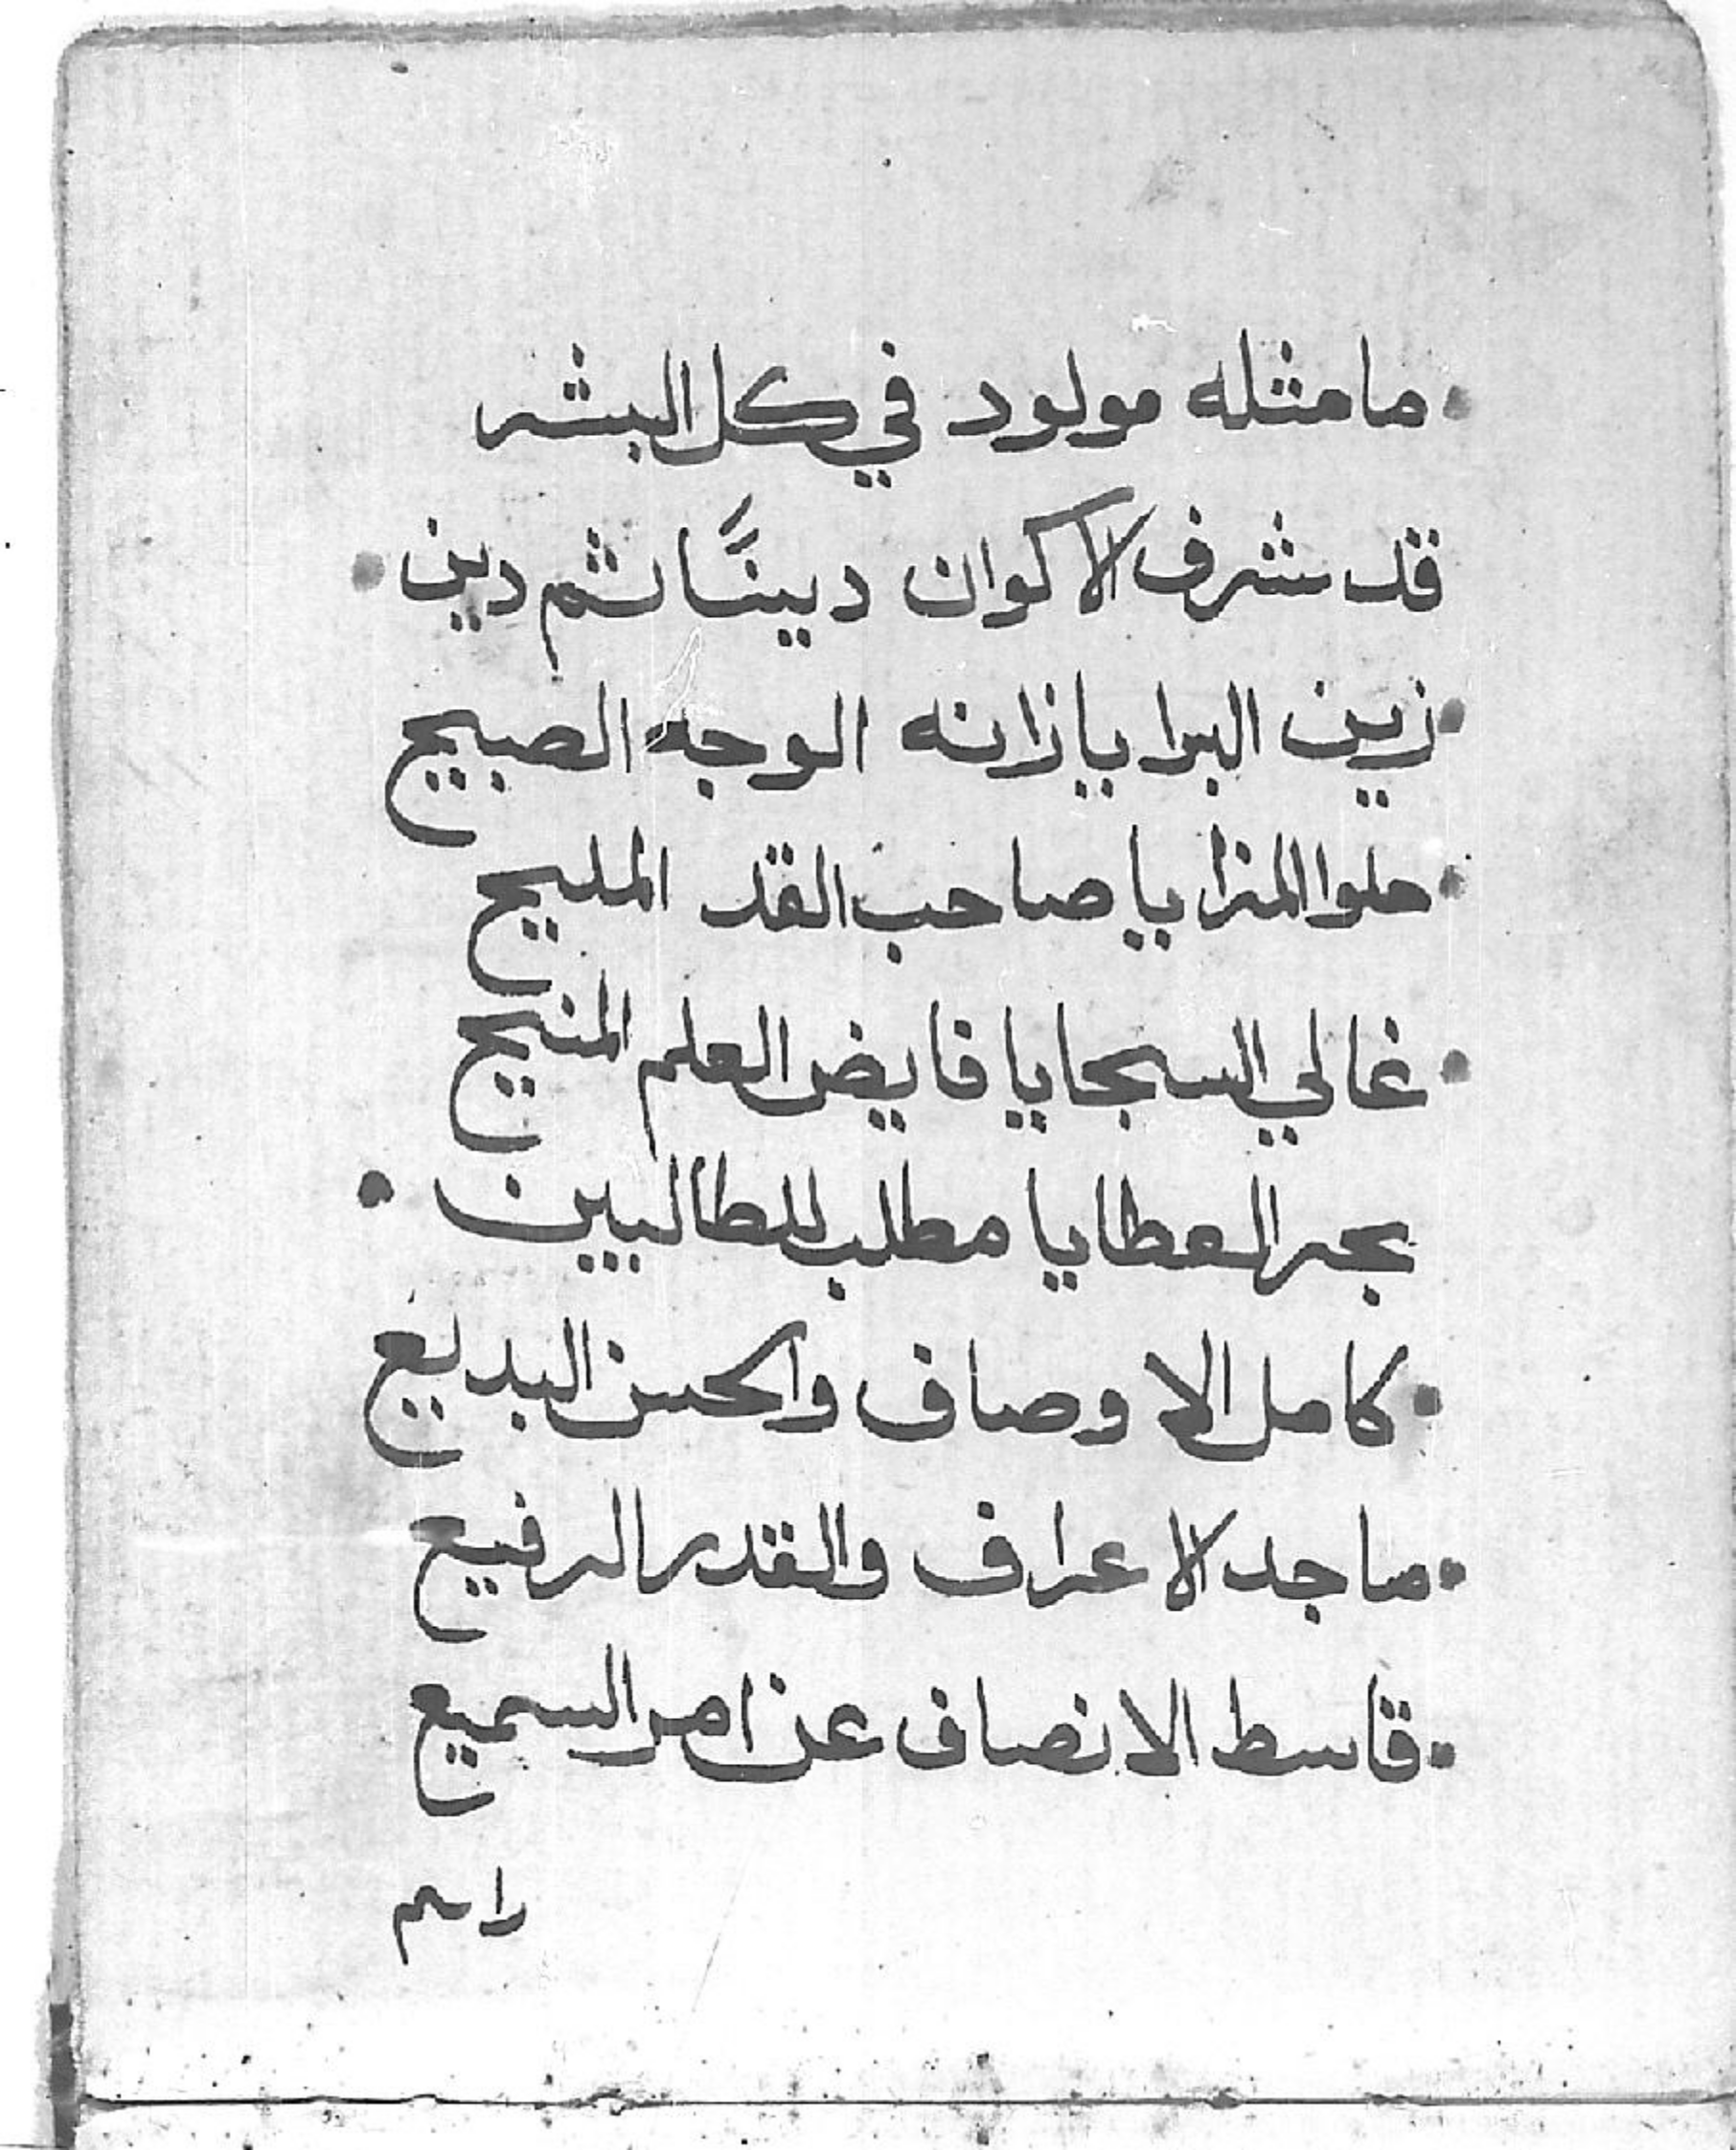 مامثله مولود في كل البشر
قد شرف الاكوان دينًا ثم دين
زين البرايا زانه الوجه الصبيح
حلوا المزايا صاحب القد المليح
غالي السجايا فايض العلم المنيح
بحر العطايا مطلب للطالبين
كامل الاوصاف والحسن البديع
ماجد الاعراف والقدر الرفيع
قاسط الانصاف عن امر السميع
راسم